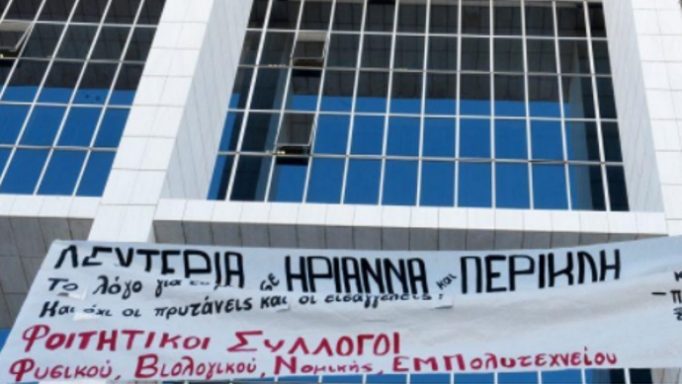 ΛΕΥΤΕΡΙΑ ΣΕ ΗΡΙΑΝΝΑ και ΠΕΡΙΚΛΗ
Το λόγο για
Και όχι οι πρυτάνεις και οι εισαγγελείς!
ΦΟΙΤΗΤΙΚΟΙ ΣΥΛΛΟΓΟΙ
Φυσικού, Βιολογικού, Νομικής, ΕΜΠολυτεχνείου